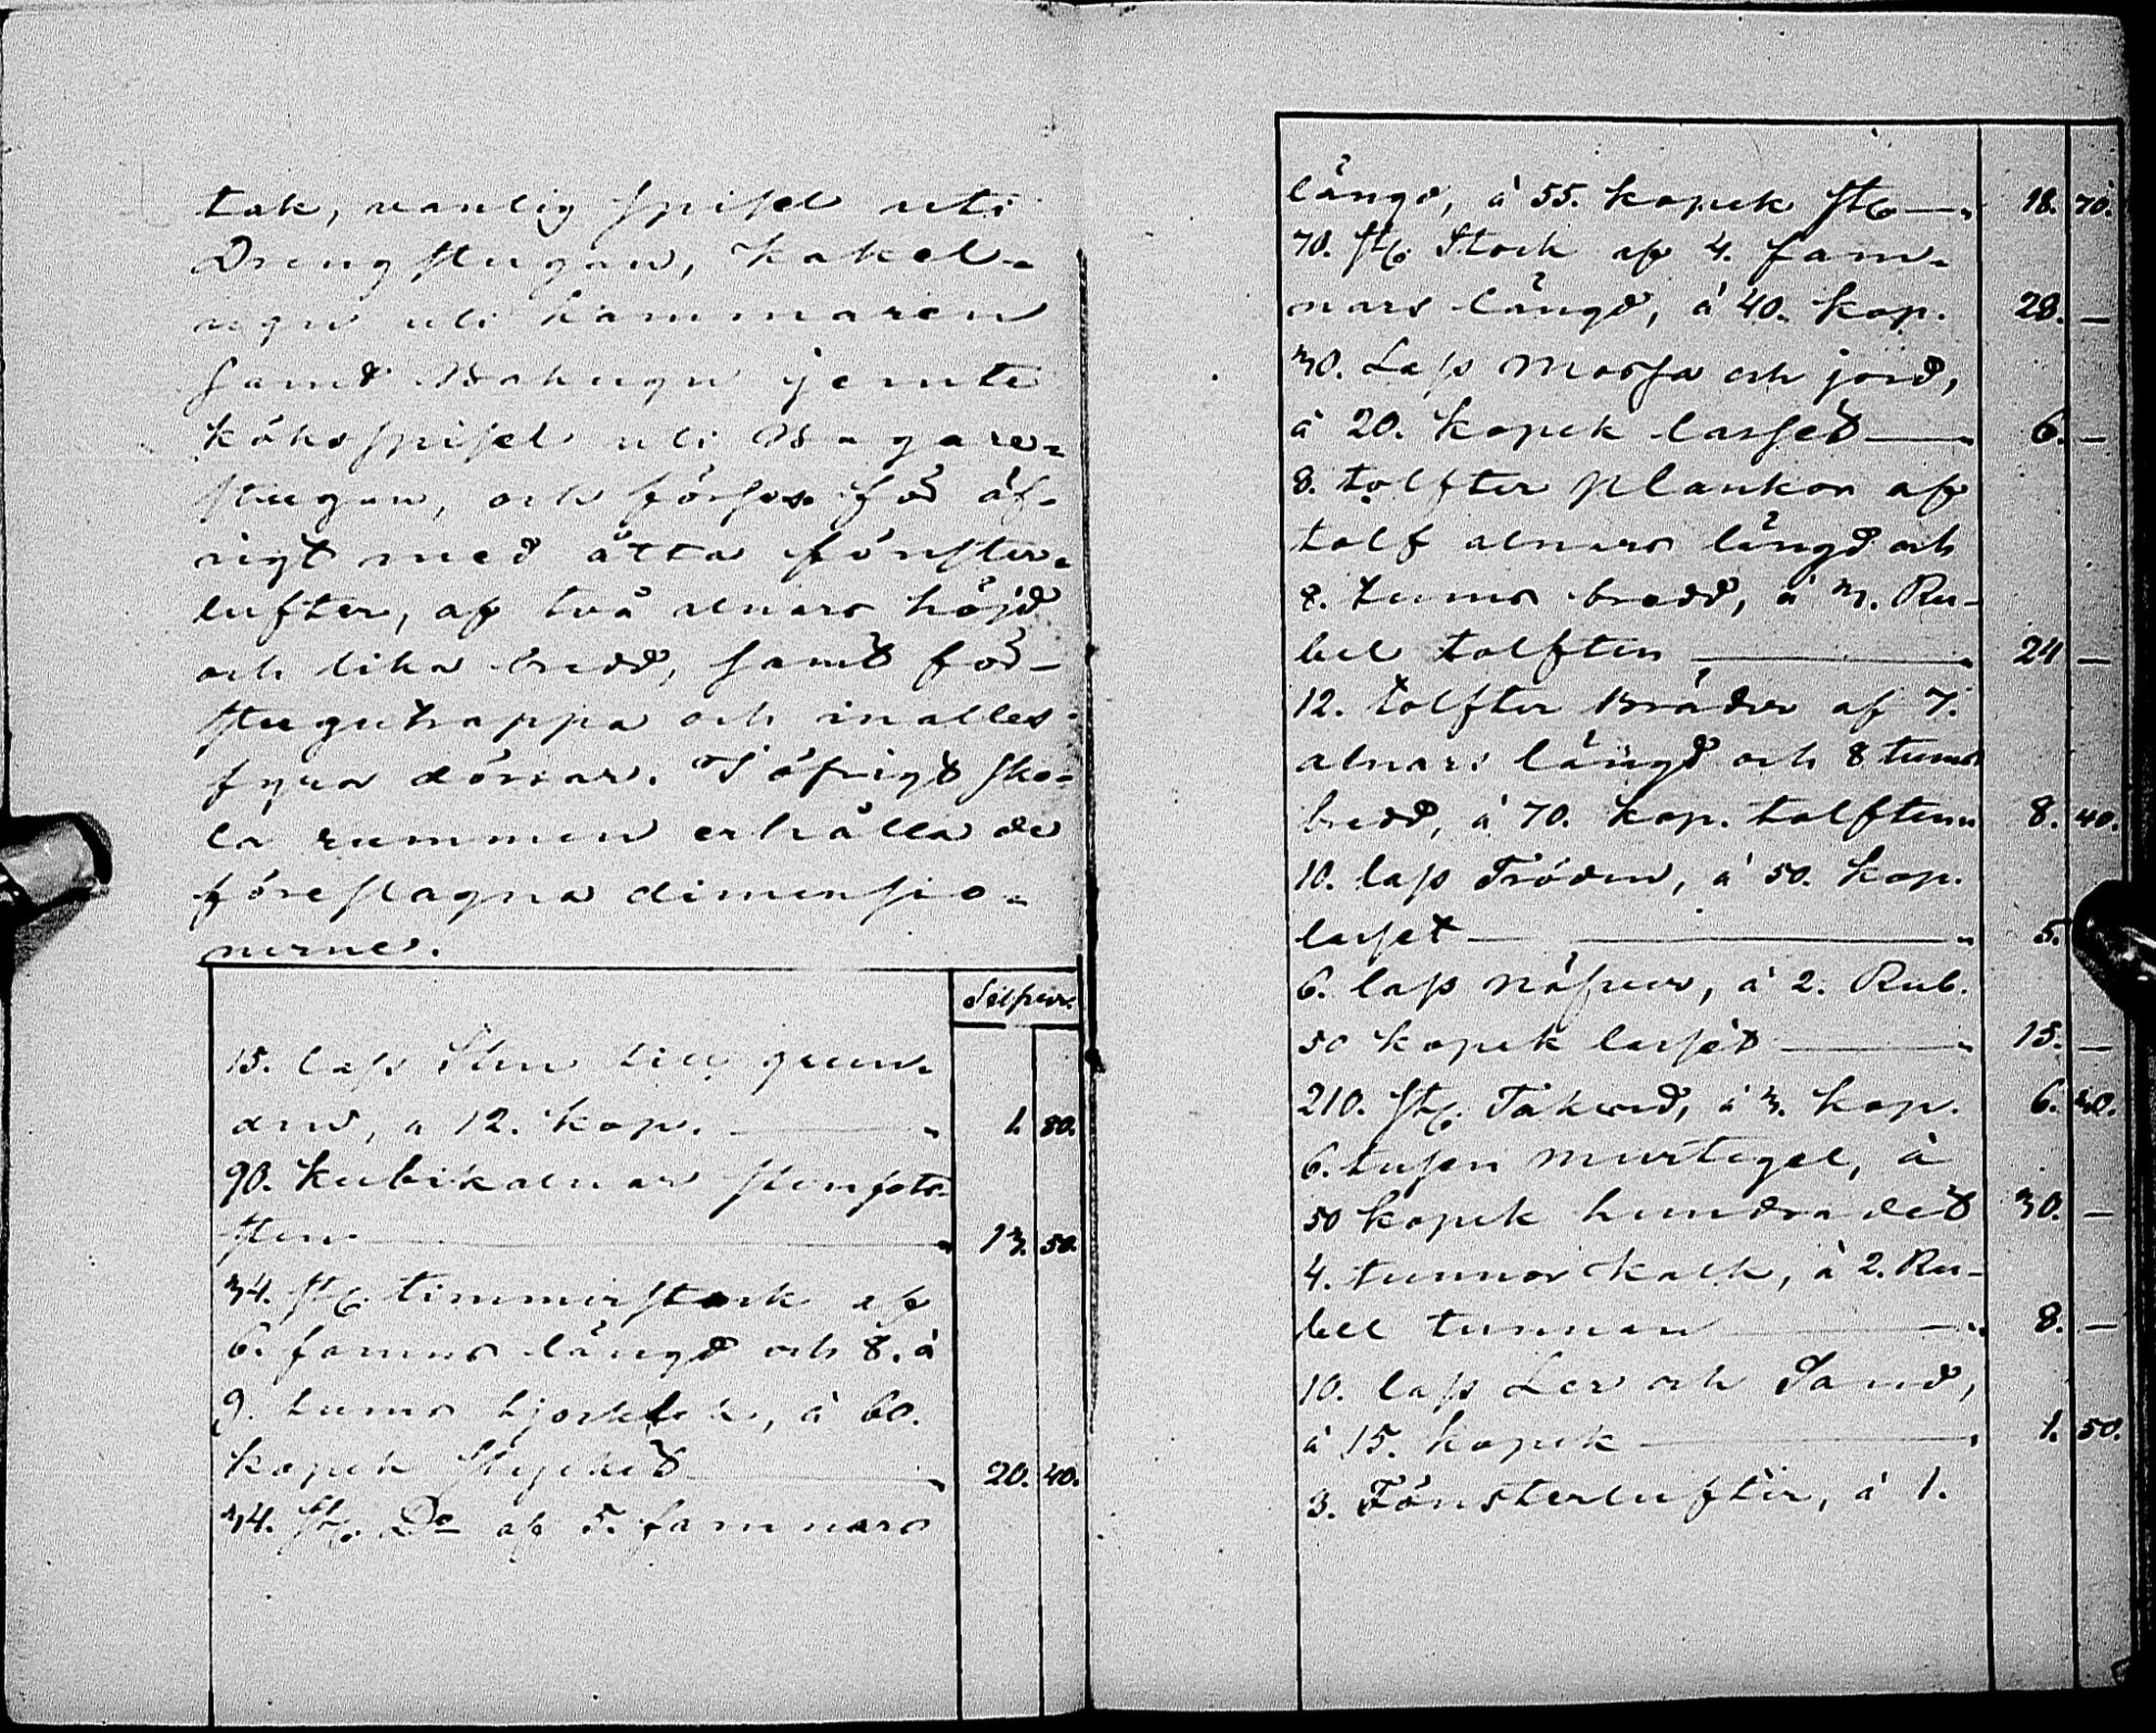 tak, vanlig spisel uti
Drengstugan, kakel-
ugn uti kammaren
samt Bakugn jemte
köksspisel uti Bagare-
stugan, och förses för öf-
rigt med åtta fönster-
lufter, af två alnars höjd
och lika bredd, samt för-
stugutrappa och inalles
fyra dörrar. I öfrigt sko-
la rummen erhålla de
föreslagna dimensio-
nerne.
Silfver.
15. lass Sten till grun-
den, a 12. kop. — 1. 80.
90. kubikalnar stenfots-
sten — 13. 50.
34. st. timmerstock af
6. famns längd och 8. à
9. tums tjocklek, à 60.
kopek stycket — 20. 40.
34. st. Do af 5. famnars
längd, à 55. kopek st. — 18. 70.
70. st. Stock af 4. fam-
nars längd, à 40. kop. 28. —
30. Lass Mossa och jord,
à 20. kopek lasset — 6. —
8. tolfter plankor af
tolf alnars längd och
8. tums bredd, à 3. Ru-
bel tolften — 24 —
12. tolfter Bräder af 7.
alnars längd och 8 tums
bredd, à 70. kop. tolften 8. 40.
10. lass Tröden, à 50. kop.
lasset — 5.
6. lass näfver, à 2. Rub.
50 kopek lasset — 15. —
210. st. Takved, à 3. kop. 6. 30.
6. tusen murtegel, à
50 kopek hundradet 30. —
4. tunnor kalk, à 2. Ru-
bel tunnan — 8. —
10. lass Ler och Sand,
à 15. kopek — 1. 50.
3. Fönsterlufter, à 1.